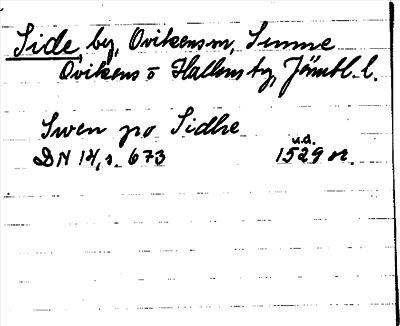 Side, by, Ovikens sn, Sunne
Ovikens o Hallens tg, Jämtl. l.
Swen po Sidhe
u.d.
DN 14, s. 673 1529 or.